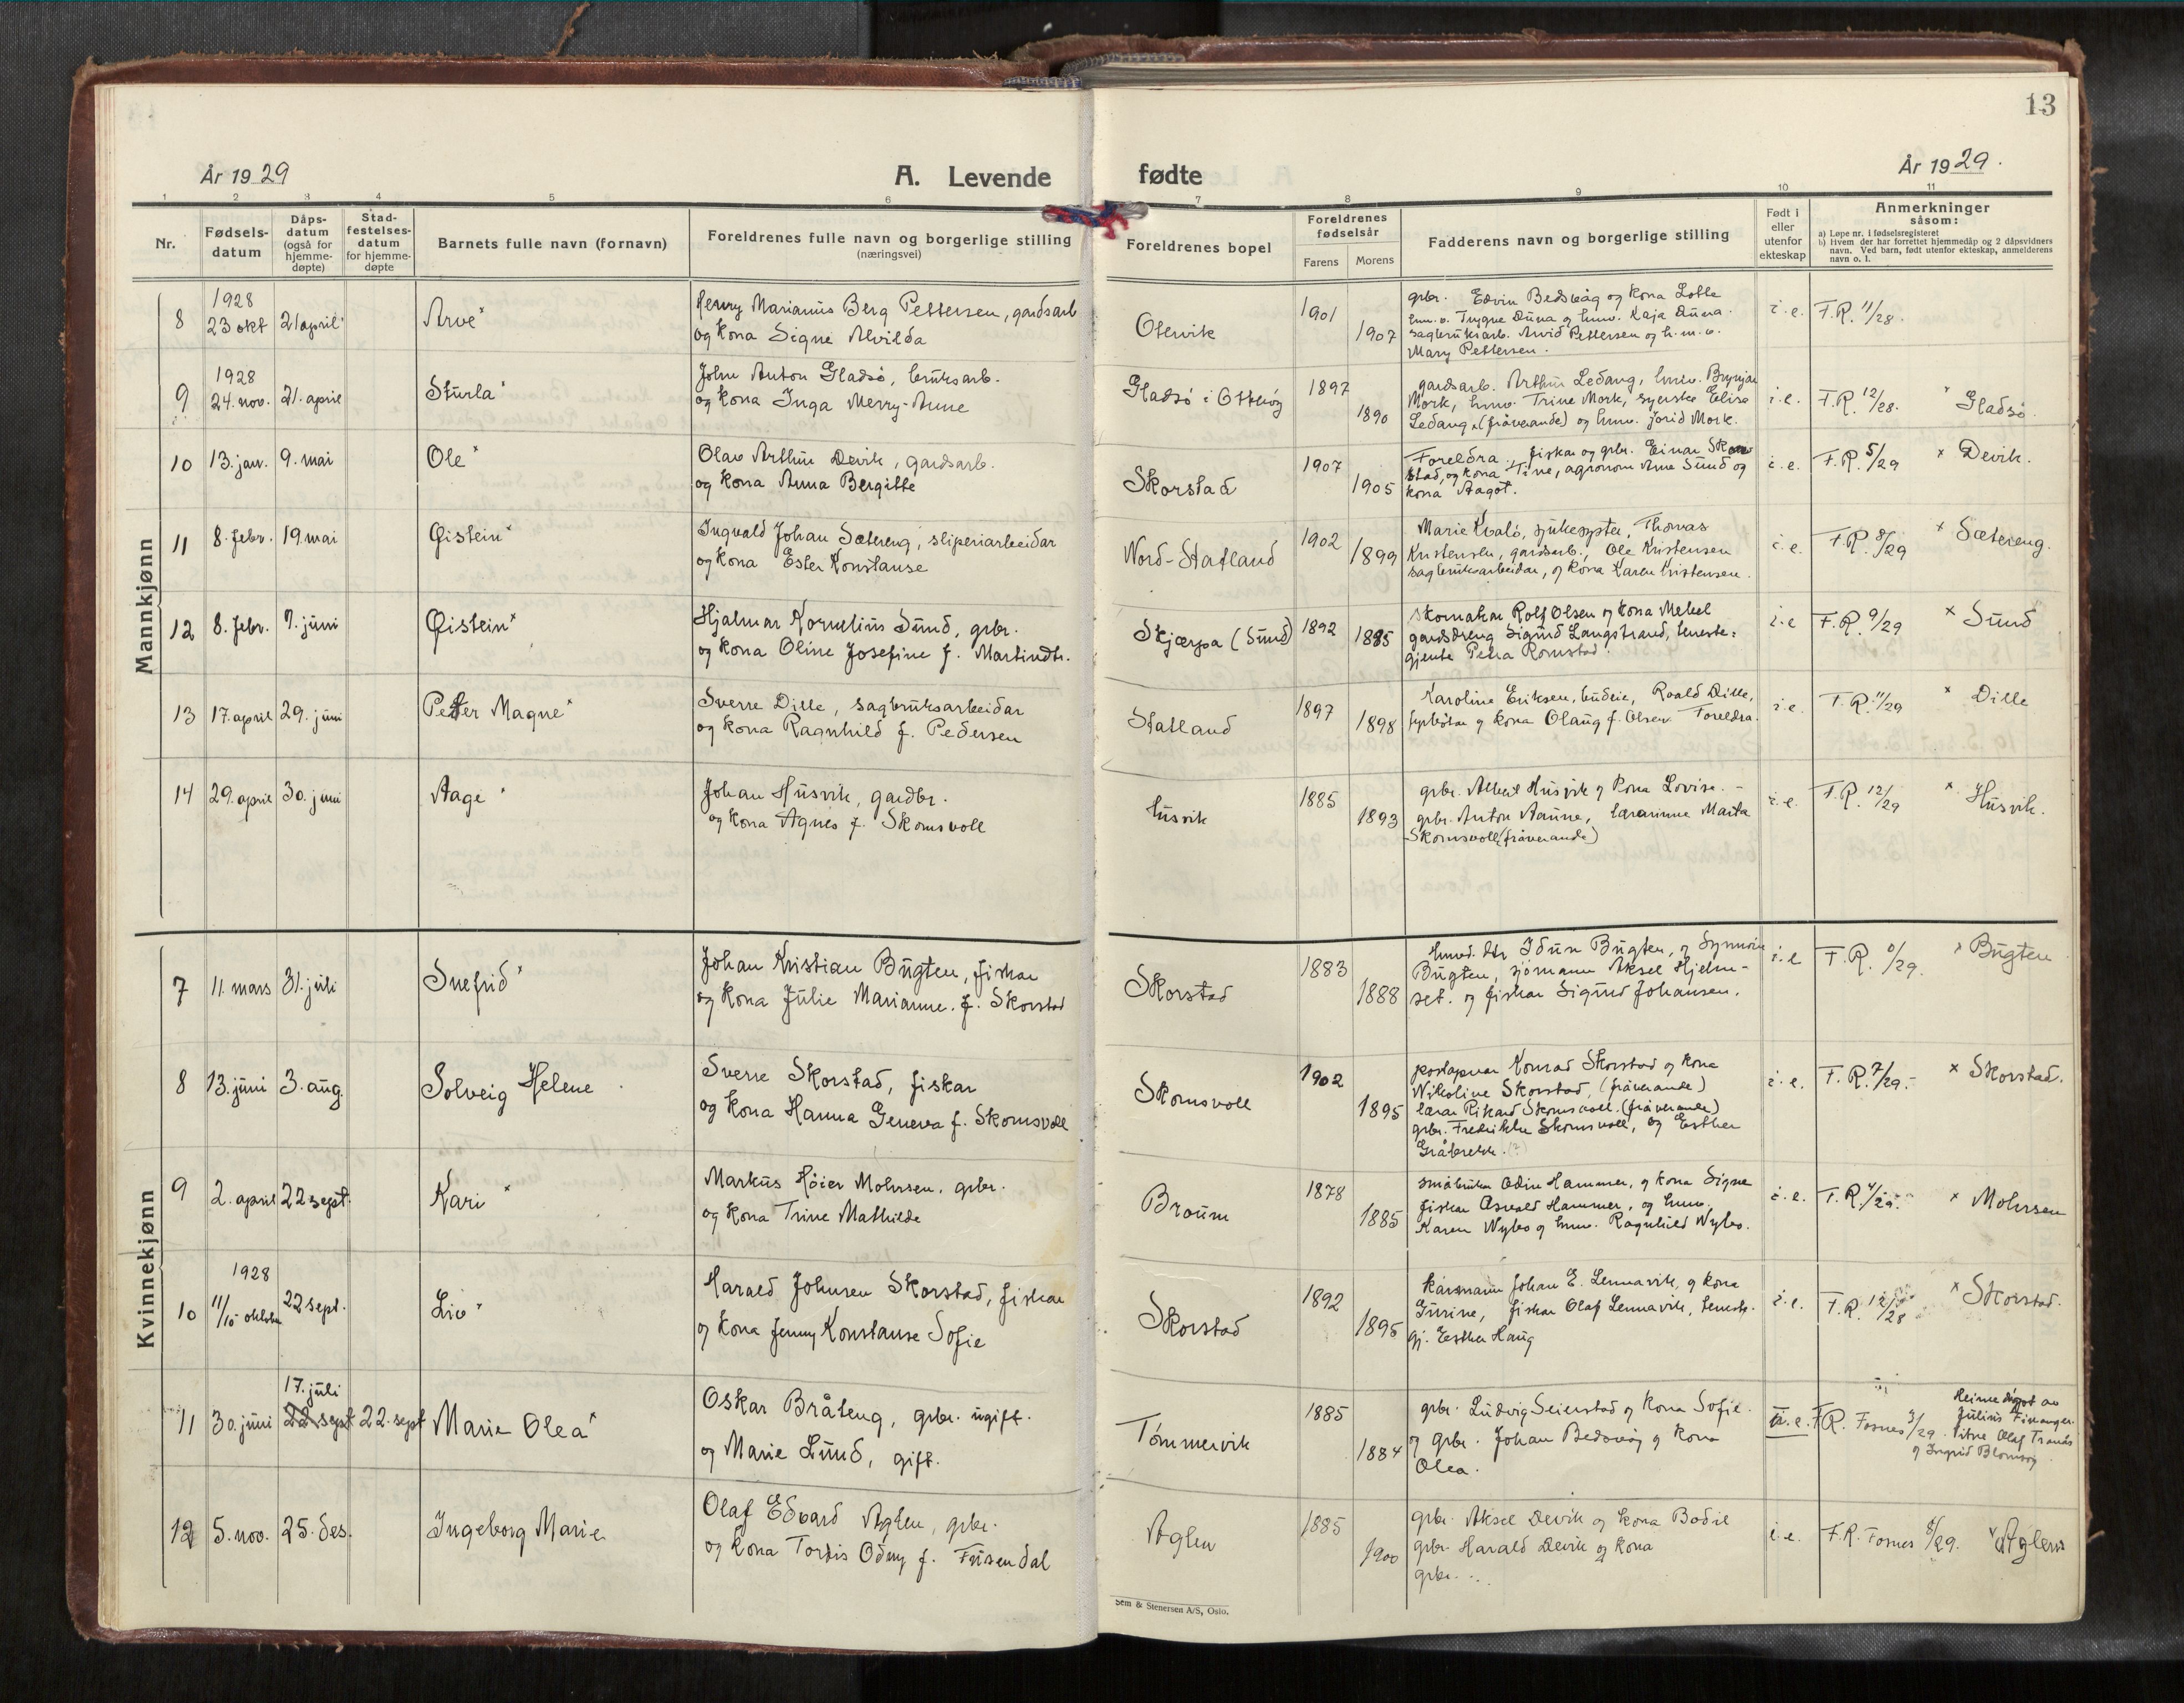 13
År 1929
A. Levende
fødte
År 1929.
1 2 3 4 5 6 7 8 9 10 11
Nr.
Fødsels-
datum
Dåps-
datum
(også for
hjemme-
døpte)
Stad-
festelses-
datum
for hjemme-
døpte
Barnets fulle navn (fornavn)
Foreldrenes fulle navn og borgerlige stilling
(næringsvei)
Foreldrenes bopel
Foreldrenes
fødselsår
Farens Morens
Fadderens navn og borgerlige stilling
Født i
eller
utenfor
ekteskap
Anmerkninger
såsom:
a) Løpe nr. i fødselsregisteret
b) Hvem der har forrettet hjemmedåp og 2 dåpsvidners
navn. Ved barn, født utenfor ekteskap, anmelderens
navn o. l.
Mannkjønn
8
1928
23 okt
21 april
Arve x
Henry Marianus Berg Pettersen, gardsarb
og kona Signe Alvilda
Otervik
1901
1907
grbr. Edvin Bedsvåg og kona Lotte
hmv. Trygve Duna og hmv. Kaja Duna.
sagbruksarb. Arvid Pettersen og h.m.v.
Mary Pettersen.
i.e.
F.R. 11/28.
9
1928
24. nov.
21. april
Sturla x
John Anton Gladsø, bruksarb.
og kona Inga Merry-Anne
Gladsø i Otterøy
1897
1890
gardsarb. Arthur Ledang, hmv. Brynjar
Mork, hmv. Trine Mork, syerske Elisa
Ledang (fråverande) og hmv. Jorid Mork.
i.e.
F.R. 12/28.
x Gladsø.
10
13. jan.
9. mai
Ole x
Olav Arthur Devik, gardsarb.
og kona Anna Bergitte
Skorstad
1907
1905
Foreldra. fiskar og grbr. Einar Skor
stad, og kona Tine, agronom Arne Sund og
kona Aagot.
i.e.
F.R. 5/29
x Devik.
11
8. febr.
19. mai
Øistein x
Ingvald Johan Sætereng, sliperiarbeidar
og kona Ester Konstanse
Nord-Statland
1902
1899
Marie Kvalø, sjukesyster, Thomas
Kristensen, gardsarb., Ole Kristensen
sagbruksarbeidar, og kona Karen Kristensen.
i.e.
F.R. 8/29
x Sætereng.
12
8. febr.
7. juni
Øistein x
Hjalmar Kornelius Sund, grbr.
og kona Oline Josefine f. Martindtr.
Skjærpa (Sund)
1892
1885
skomakar Rolf Olsen og kona Mekel
gardsdreng Sigurd Langstrand, teneste-
gjente Petra Romstad.
i.e
F.R. 9/29
x Sund
13
17. april
29. juni
Petter Magne x
Sverre Dille, sagbruksarbeidar
og kona Ragnhild f. Pedersen
Statland
1897
1898
Karoline Eriksen, budeie, Roald Dille,
fyrbøtar og kona Olaug f. Olsen. Foreldra.
i.e.
F.R. 11/29
x Dille
14
29. april
30. juni
Aage x
Johan Husvik, gardbr.
og kona Agnes f. Skomsvoll
Husvik
1885
1893
grbr. Albert Husvik og kona Lovise. -
grbr. Anton Aunne, lærarinne Marta
Skomsvoll (fråverande)
i.e.
F.R. 12/29
x Husvik.
Kvinnekjønn
7
11. mars
31. juli
Snefrid x
Johan Kristian Bugten, fiskar
og kona Julie Marianne. f. Skorstad
Skorstad
1883
1888
hmd. dtr Idun Bugten, og Synnøve
Bugten, sjømann Aksel Hjelm-
set. og fiskar Sigurd Johansen.
i.e
F.R. /29.
x Bugten
8
13. juni
3. aug.
Solveig Helene
Sverre Skorstad, fiskar
og kona Hanna Geneva f. Skomsvoll
Skomsvoll
1902
1895
postopnar Konrad Skorstad og kona
Nikoline Skorstad, (fråverande)
lærar Rikard Skomsvoll. (fråverande)
grbr. Fredrikke Skomsvoll, og Esther
Gråbrekk. (?)
i.e.
F.R. 7/29.
x Skorstad.
9
2. april
22 sept.
Kari x
Markus Høier Mohrsen, grbr.
og kona Trine Mathilde
Braum
1878
1885
småbruker Odin Hammer, og kona Signe
fiskar Osvald Hammer, og hmv.
Karen Nybo og hmv. Ragnhild Nybo.
i.e.
F.R. 4/29.
x Mohrsen
10
1928
11/10 oktober
22 sept.
Liv x
Harald Johnsen Skorstad, fiskar
og kona Jenny Konstanse Sofie
Skorstad
1892
1895
kårmann Johan E. Lennavik, og kona
Gurine, fiskar Olaf Lennavik, tenest.
gj. Esther Haug
i.e.
F.R. 12/28
x Skorstad.
11
30. juni
17. juli
22 sept
22. sept
Marie Olea x
Oskar Bråteng, grbr. ugift.
og Marie Lund, gift.
Tømmervik
1885
1884
grbr. Ludvig Seierstad og kona Sofie.
og grbr. Johan Bedsvåg og kona
Olea.
u.e.
F.R. Fosnes 3/29.
Heimedøpt av
Julius Finanger
Vitne Olaf Tranås
og Ingrid Blomsøy
12
5. nov.
25. des.
Ingeborg Marie
Olaf Edvard Aglen, grbr.
og kona Tordis Odny f. Fusendal
Aglen
1885
1900
grbr. Aksel Devik og kona Bodil
grbr. Harald Devik og kona
grbr. ...
i.e.
F.R. Fosnes 8/29.
x Aglen
Sem & Stenersen A/S, Oslo.